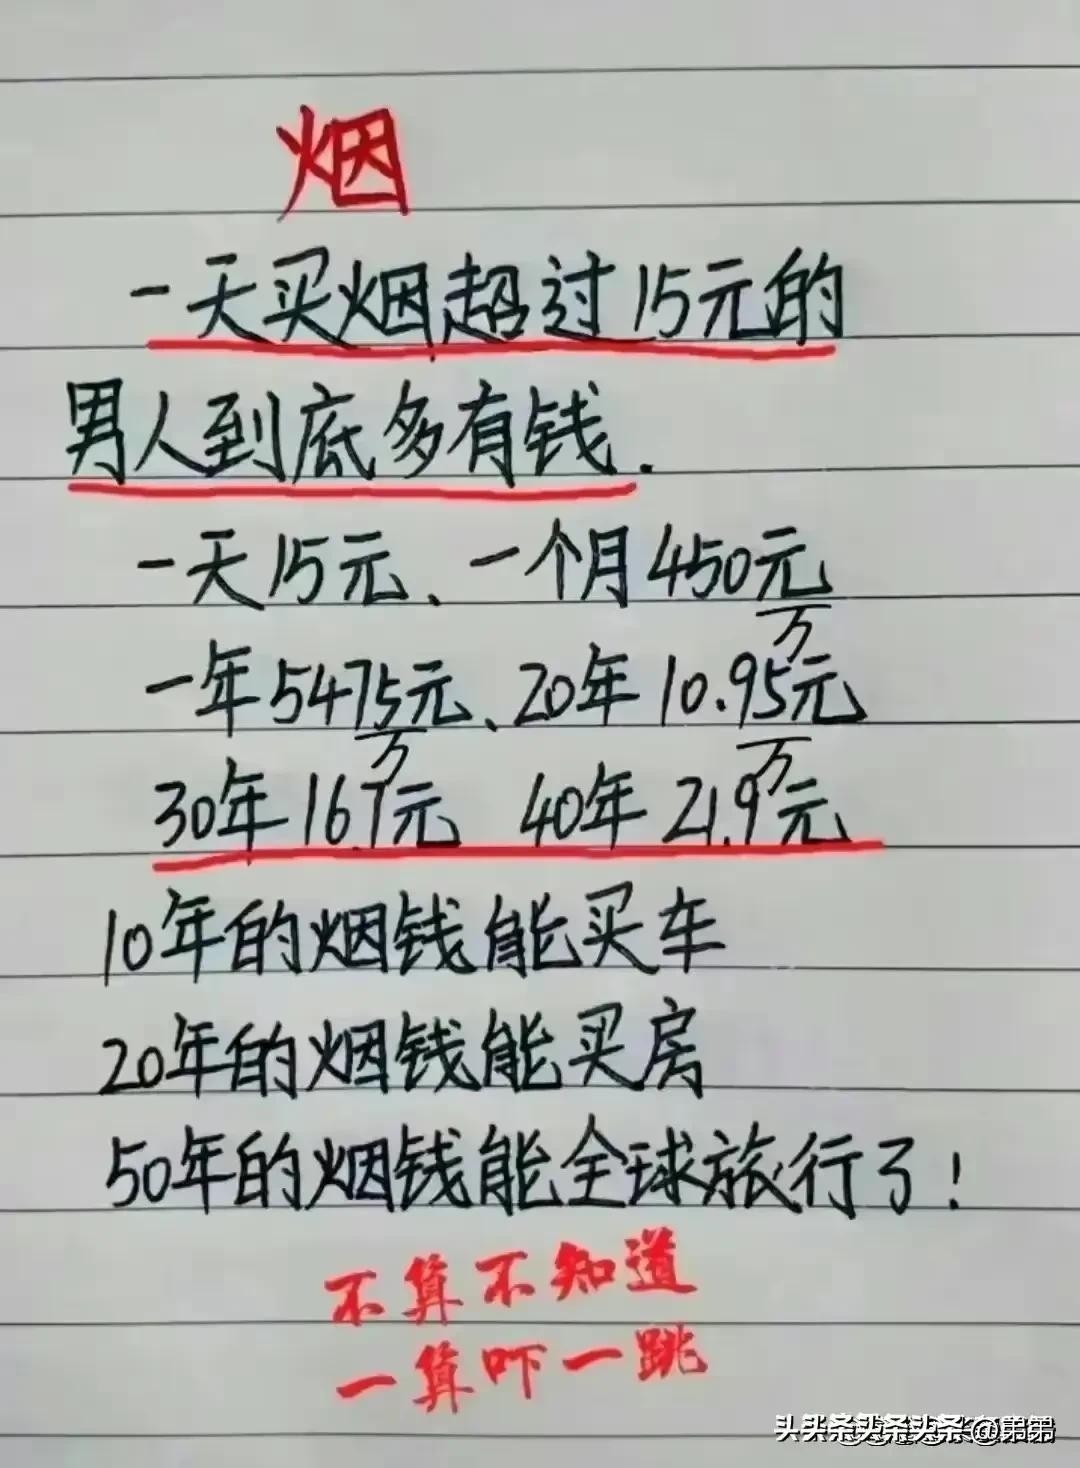 烟
一天买烟超过15元的
男人到底多有钱.
一天15元、一个月450元
一年5475元、20年10.95万元
30年16.7万元 40年21.9万元
10年的烟钱能买车
20年的烟钱能买房
50年的烟钱能全球旅行了!
不算不知道
一算吓一跳
@弟弟